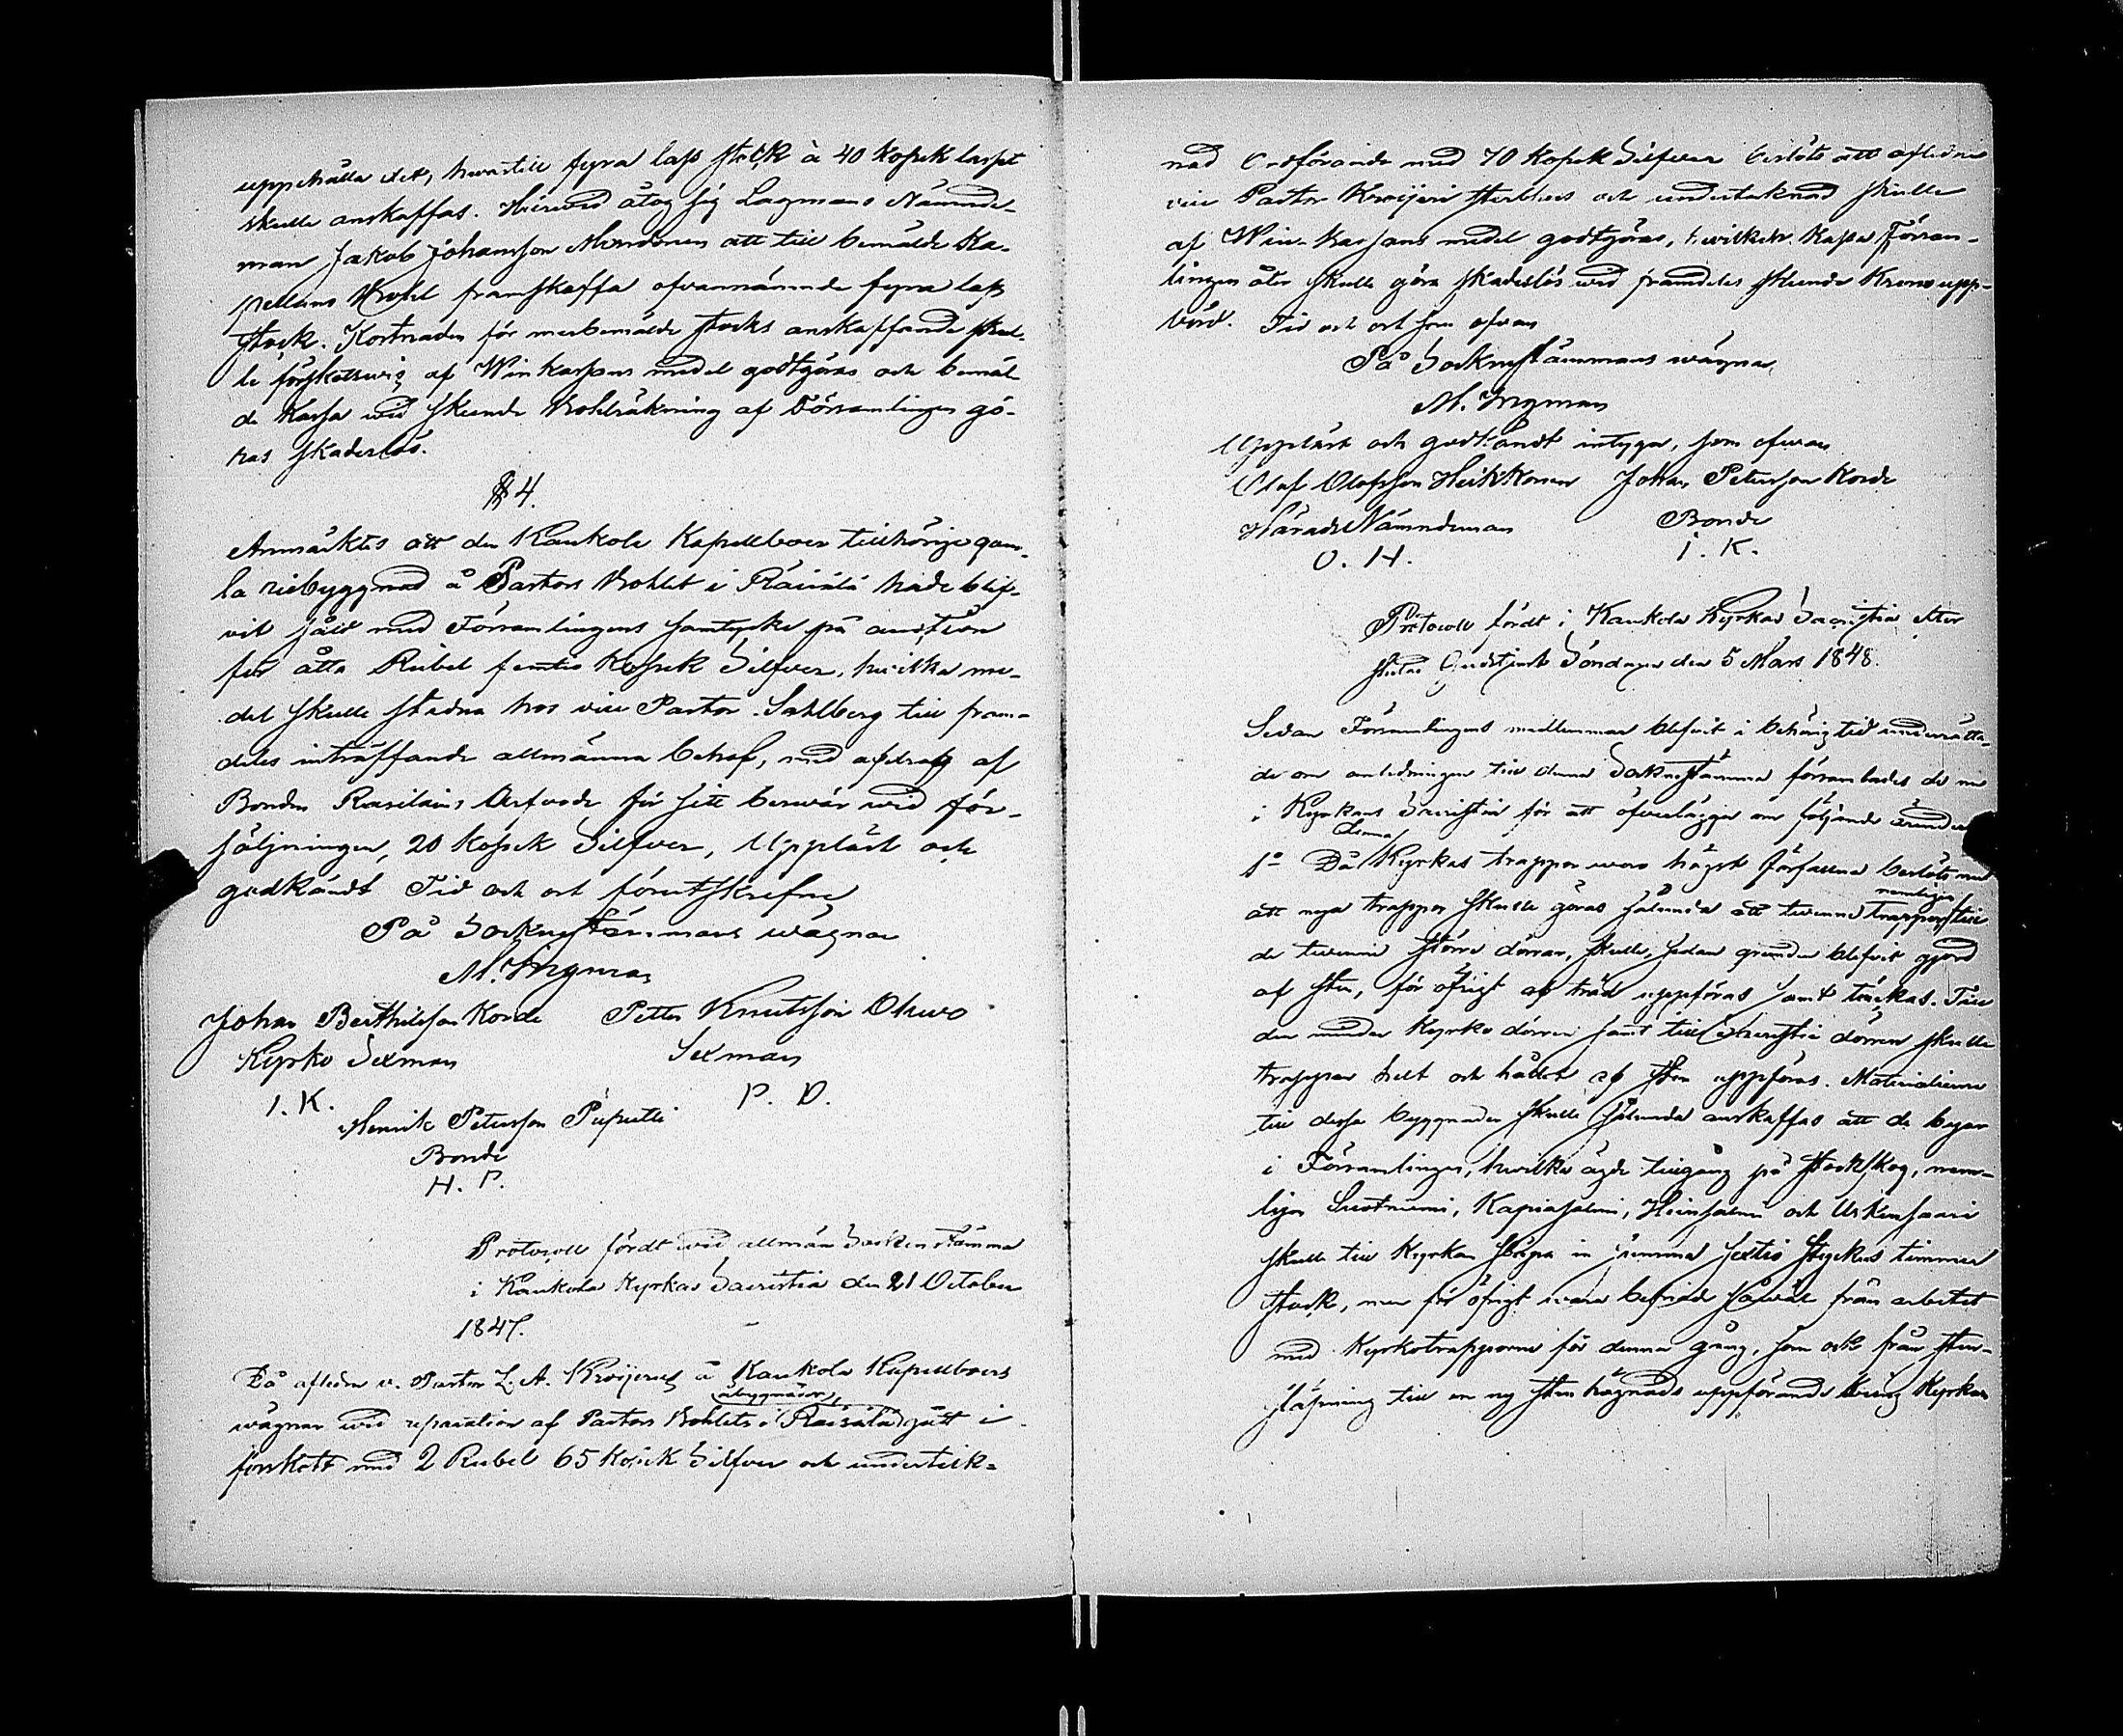 uppehålla det, hwartill fyra lass stock à 40 Kopek lasset
skulle anskaffas. Härwid åtog sig Lagmans Nämnde-
man Jakob Johansson Mondonen att till bemälde Ka-
pellans Bohl framskaffa ofvannämnde fyra lass
stock. Kostnaden för merbemälde stocks anskaffande skul-
le förskotswis af Winkassans medel godtgöras och bemäl-
de Kassa wid skeende Bohlräkning af Församlingen gö-
ras skadeslös.
§ 4.
Anmärktes att den Kaukola Kapellboer tillhörige gam-
la riebyggnad å Pastors Bohlet i Räisälä hade blif-
vit såld med Församlingens samtycke på auction
för åtta Rubel femtio Kopek Silfver, hvilka me-
del skulle stadna hos vice Pastor Sahlberg till fram-
deles inträffande allmänna behof, med afdrag af
Bonden Rasilains Arfvode för sitt beswär wid för-
säljningen, 20 Kopek Silfver, Uppläst och
godkändt Tid och ort förutskrefne
På Sockenstämmans wägnar
M. Ingman
Johan Berthilsson Korde Petter Knutsson Ohwo
Kyrko Sexman Sexman
J. K. P. O.
Henrik Petersson Puputti
Bonde
H. P.
Protocoll fördt wid allmän Sockenstämma
i Kaukola Kyrkas Sacristia den 21 October
1847.
Då afledne v. Pastor Z. A. Kröijerus å Kaukola Kapellboers
åbyggnader
wägnar wid reparation af Pastors Bohlets i Räisälä gått i
förskott med 2 Rubel 65 Kopek Silfver och underteck-
nad Ordförande med 70 Kopek Silfver beslöts att afledne
vice Pastor Kröijeri sterbhus och undertecknad skulle
af Win-kassans medel godtgöras, hwilken Kassa Försam-
lingen åter skulle göra skadeslös wid framdeles skeende Kronoupp-
börd. Tid och ort som ofvan
På Sockenstämmans wägnar
M. Ingman
Uppläst och godkändt intyga, som ofvan
Olaf Olofsson Heikkonen Johan Petersson Korde
Härads Nämndeman Bonde
O. H. J. K.
Protocoll fördt i Kaukola Kyrkas Sacristia efter
slutad Gudstjenst Söndagen den 5 Mars 1848.
Sedan Församlingens medlemmar blefvit i behörig tid underrätta-
de om anledningen till denna Sockenstämma församlades de nu
i Kyrkans Sacristia för att öfverlägga om följande ärender
denna
1o Då Kyrkas trappor woro högst förfallna beslöts nu
nemligen
att nya trappor skulle göras sålunda att twenne trappor till
de twenne större dörrar, skulle, sedan grunden blefvit gjord
af sten, för öfrigt af träd uppföras samt täckas. Till
den mindre Kyrko dörren samt till Sacristie dörren skulle
trappor helt och hållet af sten uppföras. Materialierne
till dessa byggnader skulle sålunda anskaffas att de byar
i Församlingen, hwilka ägde tillgång på stockskog, nem-
ligen Suotniemi, Kapiasalmi, Heinsalmi och Urkensaari
skulle till Kyrkan släpa in summa sextio stycken timmer
stock, men för öfrigt wara befriade såwäl från arbetet
med Kyrkotrapporne för denna gång, som ock från sten-
släpning till en ny sten hägnads uppförande kring Kyrkan